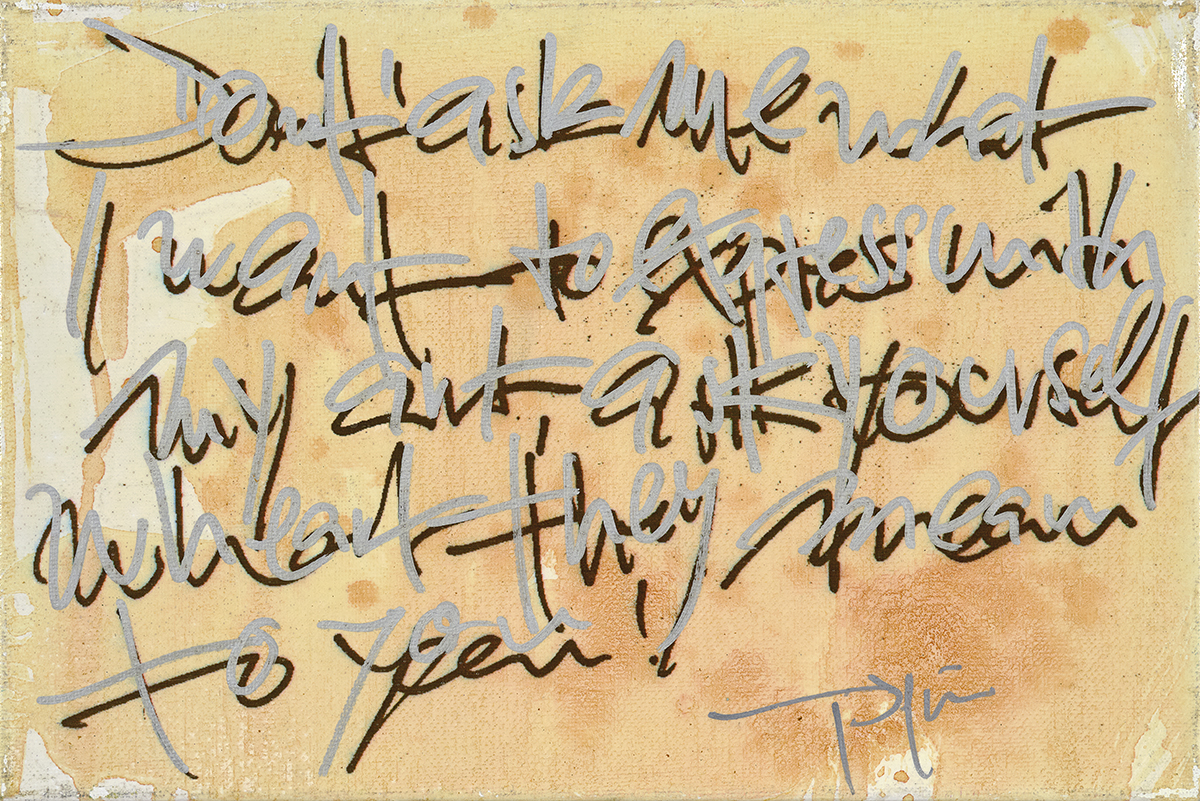 Don't ask me what
I want to express with
my art ask yourself
wheat they mean
to you!